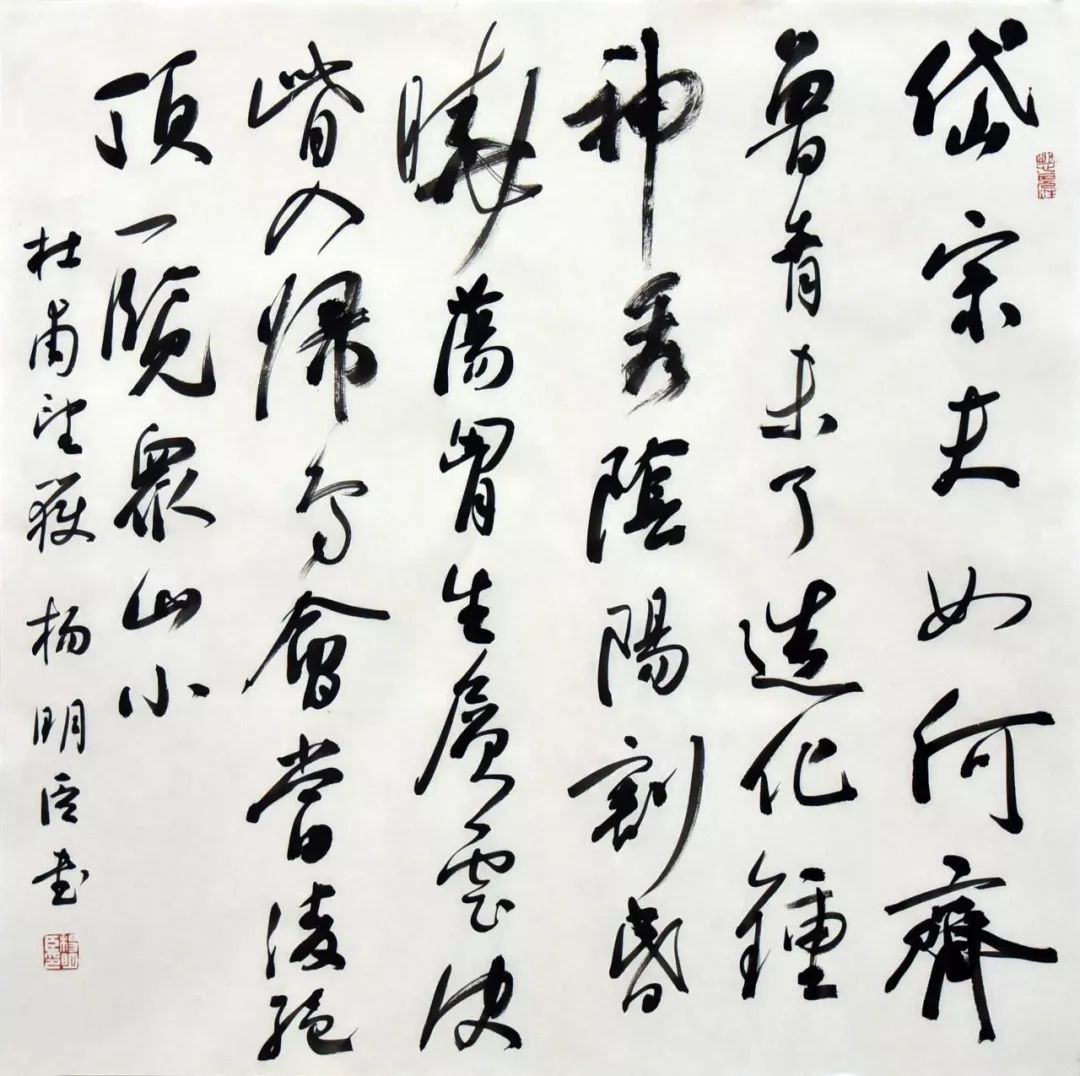 岱宗夫如何齊
魯青未了造化鍾
神秀陰陽割昏
曉蕩胷生層雲决
眥入歸鳥會當凌絕
頂一覽眾山小
杜甫望嶽 杨明臣书